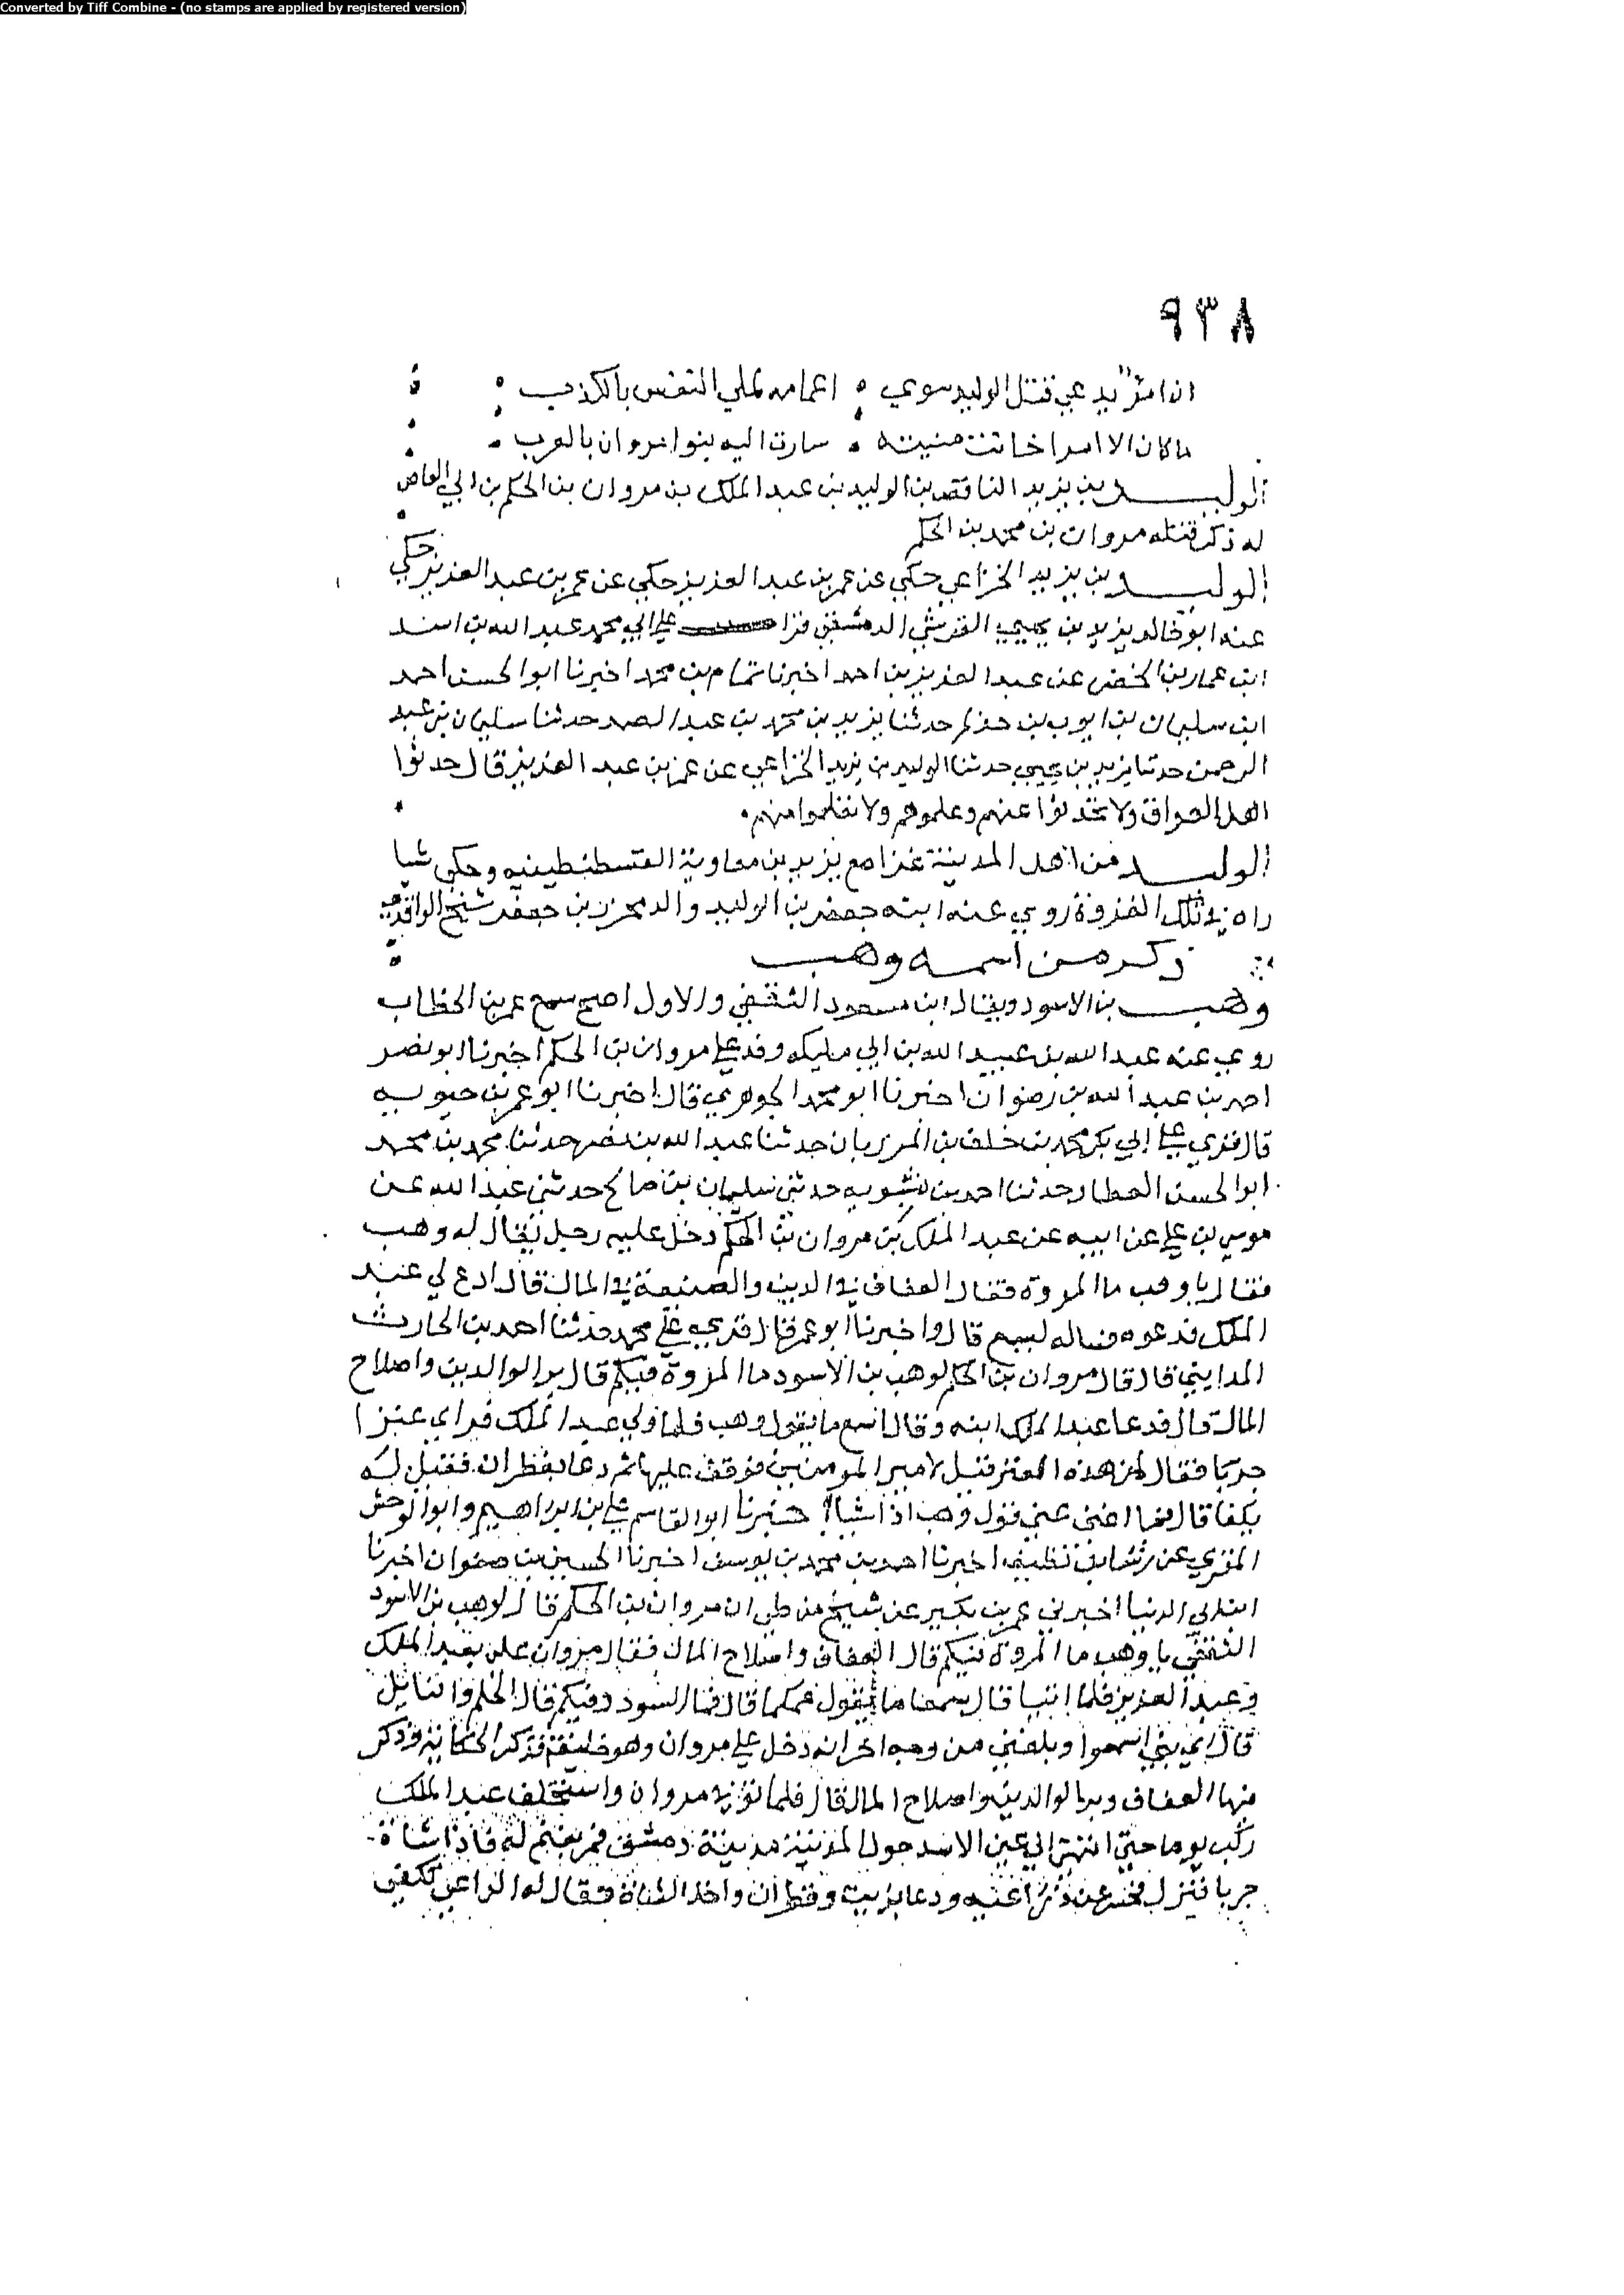 Converted by Tiff Combine - (no stamps are applied by registered version)
٩٣٨
ان امرؤ يدعي قتل الوليد سوي اعمامه لملي النفس بالكذب
ما كان الا امرا خانت منيته سارت اليه بنوا مروان بالعرب
الوليد بن يزيد الناقص بن الوليد بن عبد الملك بن مروان بن الحكم بن ابي العاص
له ذكر قتله مروان بن محمد بن الحكم
الوليد بن يزيد الخزاعي حكي عن عمر بن عبد العزيز حكي عن عمر بن عبد العزيز حكي
عنه ابو خالد يزيد بن يحيي القرشي الدمشقي قرا علي ابي محمد عبد الله بن اسد
ابن عمار بن الخضر عن عبد العزيز بن احمد اخبرنا تمام بن محمد اخبرنا ابو الحسن احمد
ابن سليمان بن ايوب بن حذلم حدثنا يزيد بن محمد بن عبد الصمد حدثنا سليمان بن عبد
الرحمن حدثنا يزيد بن يحيي حدثنا الوليد بن يزيد الخزاعي عن عمر بن عبد العزيز قال حدثوا
اهل العراق ولا تحدثوا عنهم وعلموهم ولا تعلموا منهم
الوليد من اهل المدينة غزا مع يزيد بن معاوية القسطنطينيه وحكي شيا
راه في تلك الغزوة روي عنه ابنه جعفر بن الوليد والد محرز بن جعفر شيخ الواقدي
ذكر من اسمه وهب
وهب بن الاسود ويقال ابن مسعود الثقفي والاول اصح سمع عمر بن الخطاب
روي عنه عبد الله بن عبيد الله بن ابي مليكه وفد علي مروان بن الحكم اخبرنا ابو نصر
احمد بن عبد الله بن رضوان اخبرنا ابو محمد الجوهري قال اخبرنا ابو عمر بن حيويه
قال قري علي ابي بكر محمد بن خلف بن المرزبان حدثنا عبد الله بن نصر حدثنا محمد بن محمد
ابو الحسن العطار حدثنا احمد بن شبويه حدثني سليمان بن صالح حدثني عبد الله عن
موسي بن علي عن ابيه عن عبد الملك بن مروان بن الحكم دخل عليه رجل يقال له وهب
فقال يا وهب ما المروة فقال العفاف في الدين والصنيعة في المال قال ادع لي عبد
الملك فدعوه فساله ليسمع قال واخبرنا ابو عمر قال قري علي محمد حدثنا احمد بن الحارث
المدايني قال قال مروان بن الحكم لوهب بن الاسود ما المروة فيكم قال بر الوالدين واصلاح
المال قال فدعا عبد الملك ابنه وقال اسمع ما يقول وهب فلما ولي عبد الملك فراي عنزا
جربا فقال لمن هذه العنز فقيل لامير المومنين فوقف عليها ثم دعا بقطران فقيل له
يكفا قال فما اغني عني قول وهب اذا شيا اخبرنا ابو القاسم علي بن ابراهيم وابو الوحش
المقري عن رشا بن نظيف اخبرنا احمد بن محمد بن يوسف اخبرنا الحسين بن صفوان اخبرنا
ابن ابي الدنيا اخبرني عمر بن بكير عن شيخ من طي ان مروان بن الحكم قال لوهب بن الاسود
الثقفي يا وهب ما المروة فيكم قال العفاف واصلاح المال فقال مروان علي بعبد الملك
وعبد العزيز فلما اتيا قال اسمعا ما يقول عمكما قال فما السودد فيكم قال الحلم والنايل
قال اي بني اسمعوا وبلغني من وجه اخر انه دخل علي مروان وهو خليفة فذكر الحكاية وذكر
منها العفاف وبر الوالدين واصلاح المال قال فلما توفي مروان واستخلف عبد الملك
ركب يوما حتي انتهي الي عين الاسد حول المدينة مدينة دمشق فمر بغنم له فاذا شاة
جربا فنزل فحسر عن ذراعيه ودعا بزيت وقطران واخذ الشاة فقال له الراعي تكفي